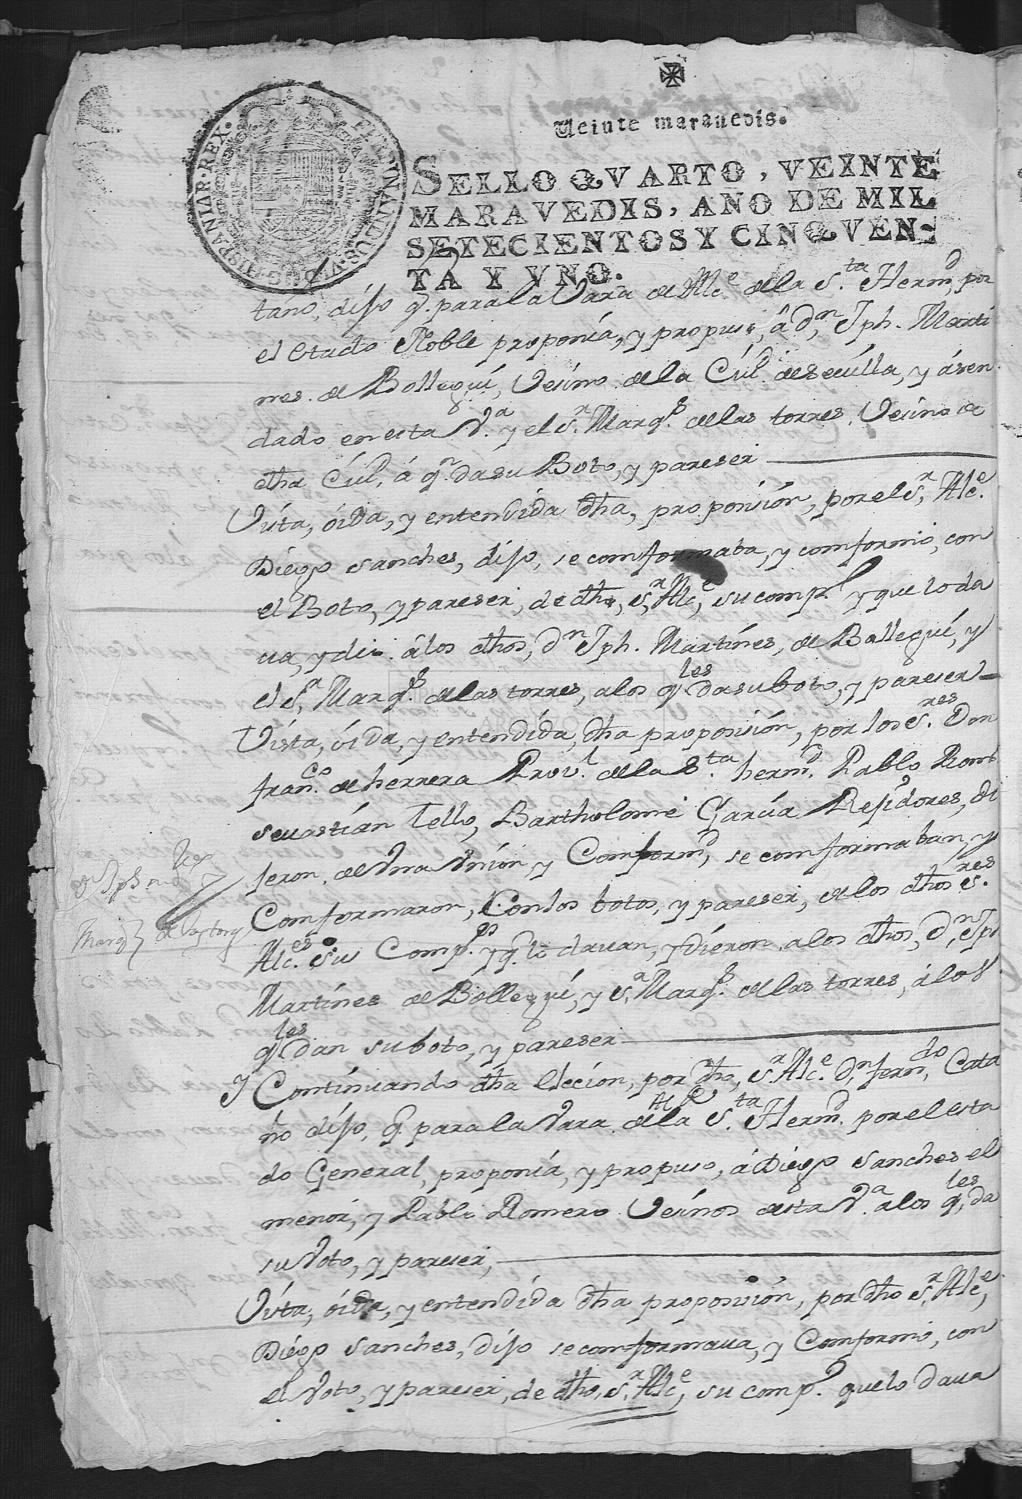 FERDINANDUS·VI·D·G·HISPANIAR·REX·
Veinte marauedis.
SELLO QVARTO, VEINTE
MARAVEDIS, AÑO DE MIL
SETECIENTOS Y CINQVEN-
TA Y VNO.
tano, dijo q. para la Vara de Alc.e de la S.ta Herm.d por
el Estado Noble proponia, y propuso, â d.n Jph. Marti
nes. de Bolleguí, Vesino de la Ciud. de Sevilla, y ásen
dado en esta V.a y el S.r Marq.s de las torres, Vesino de
dha Ciud, á q.n da su Boto, y pareser
Vista, óida, y entendida dha, proposision, por el S.r Alc.e
Diego Sanches, dijo, se comformaba, y comformó, con
el Boto, y pareser, de dho, S.r Alc.e, su comp.o y que lo da
ua, y dio. á los dhos, d.n Jph. Martínes, de Balleguí, y
el S.r Marq.s de las torres, a los q.les da su boto, y pareser
Vista, óida, y entendida, dha proposision, por los S.res Don
fran.co de herrera Prov.l de la S.ta herm.d Pablo Rom.o
sevastián Tello, Bartholomé Garcia Rejidores, di
jeron, de Vna Vnion, y Comform.d, se comformaban, y
Comformaron, Con los botos, y pareser, de los dhos S.res
Alc.es Su Comp.os y q. lo davan, y dieron a los dhos, d.n Jph
Martínes de Bolleguí, y S.r Marq.s de las torres, á los
q.les dan su boto, y pareser
Y Continuando dha Elecion, por dho, S.r Alc.e d.n fern.do Cata
ño dijo, q. para la Vara de Alc.e de la S.ta Herm.d por el esta
do General, proponía, y propuso, á Diego Sanches el
menor, y Pablo Romero Vesinos desta V.a a los q.les da
su Voto, y pareser,
Vista, óida, y entendida dha proposision, por dho S.r Alc.e,
Diego Sanches, dijo se comformaua, y Comformó, con
el Voto, y pareser, de dho, S.r Alc.e, su comp.o que lo daua
Marq.s de las torres